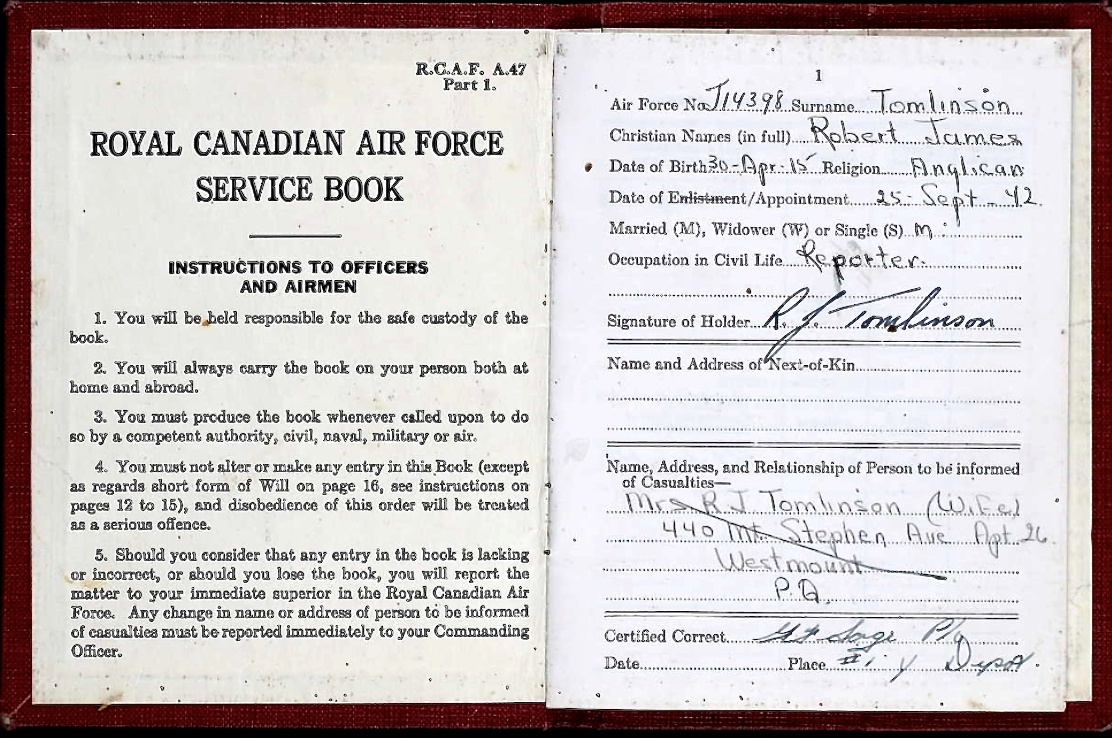 R.C.A.F. A.47
Part 1.
ROYAL CANADIAN AIR FORCE
SERVICE BOOK
INSTRUCTIONS TO OFFICERS
AND AIRMEN
1. You will be held responsible for the safe custody of the
book.
2. You will always carry the book on your person both at
home and abroad.
3. You must produce the book whenever called upon to do
so by a competent authority, civil, naval, military or air.
4. You must not alter or make any entry in this Book (except
as regards short form of Will on page 16, see instructions on
pages 12 to 15), and disobedience of this order will be treated
as a serious offence.
5. Should you consider that any entry in the book is lacking
or incorrect, or should you lose the book, you will report the
matter to your immediate superior in the Royal Canadian Air
Force. Any change in name or address of person to be informed
of casualties must be reported immediately to your Commanding
Officer.
1
Air Force No. J14398 Surname Tomlinson
Christian Names (in full) Robert James
Date of Birth 30-Apr-15 Religion Anglican
Date of Enlistment/Appointment 25-Sept-42.
Married (M), Widower (W) or Single (S) M
Occupation in Civil Life Reporter.
Signature of Holder R. J. Tomlinson
Name and Address of Next-of-Kin
Name, Address, and Relationship of Person to be informed
of Casualties—
Mrs R J Tomlinson (Wife)
440 Mt. Stephen Ave Apt. 26
Westmount
P.Q.
Certified Correct
Date Place #1 Y Depot.